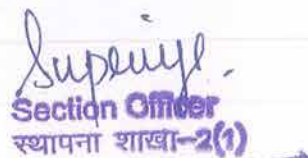 Section Officer
स्थापना शाखा-2(1)